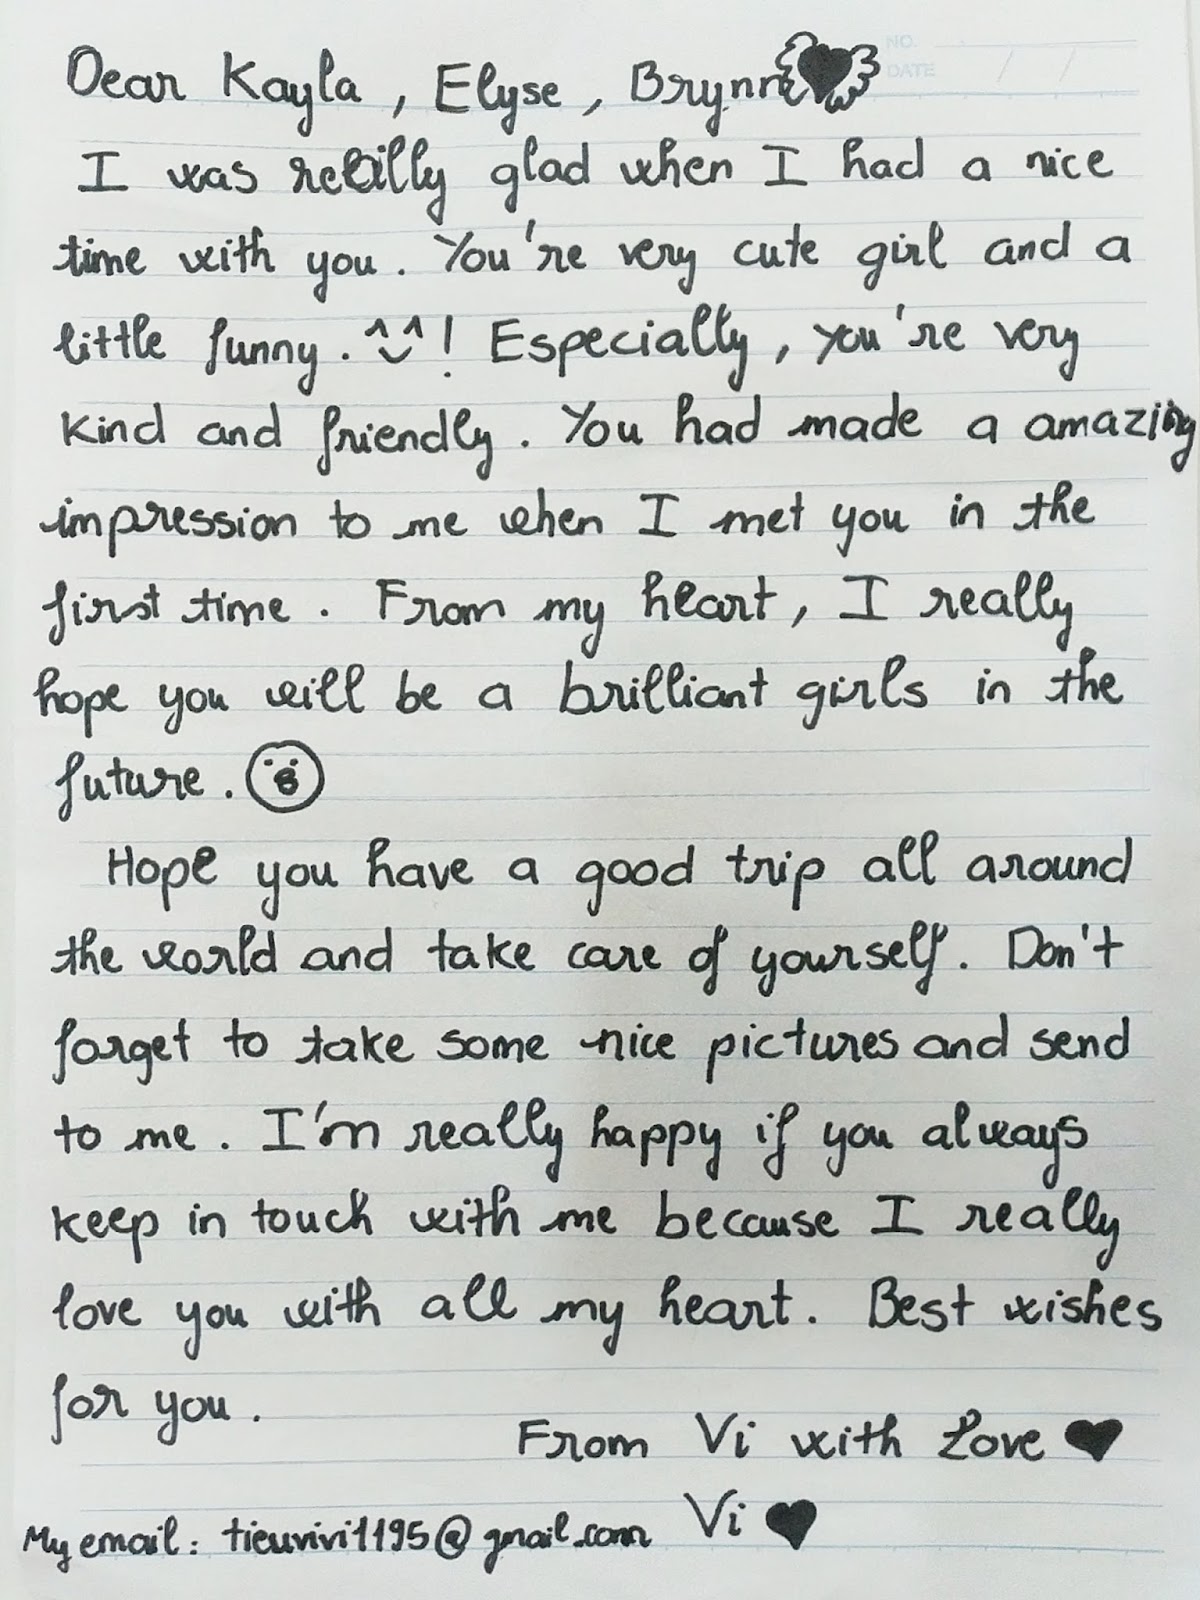 NO.
DATE / /
Dear Kayla, Elyse, Brynn
I was really glad when I had a nice
time with you. You're very cute girl and a
little funny. ^^! Especially, you're very
kind and friendly. You had made a amazing
impression to me when I met you in the
first time. From my heart, I really
hope you will be a brilliant girls in the
future.
Hope you have a good trip all around
the world and take care of yourself. Don't
forget to take some nice pictures and send
to me. I'm really happy if you always
keep in touch with me because I really
love you with all my heart. Best wishes
for you.
From Vi with Love
Vi
My email: tieuvivi1195@gmail.com